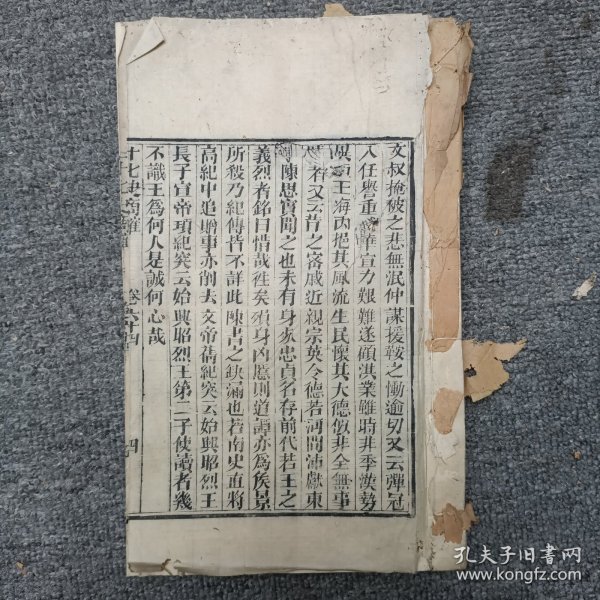 文叔掩被之悲無泯仲謀援鞍之慟逾切又云彈冠
入任譽重 華宣力艱難遂碩洪業雖時非季漢勢
王海內挹其風流生民懷其大德俶非全無事
者又云昔之宗戚近親宗英令德若河間沖獻東
陳思實聞之也未有身 忠貞名存前代若王之
義烈者銘曰惜哉 矣殞身凶 則道譚亦為侯景
所殺乃紀傳皆不詳此陳書之缺漏也若南史直將
高紀中追贈事亦削去文帝 紀突云始興昭烈王
長子宣帝頊紀突云始興昭烈王第二子使讀者幾
不識王為何人是誠何心哉
十七史商榷 卷六十四 四
孔夫子旧书网
www.kongfz.com